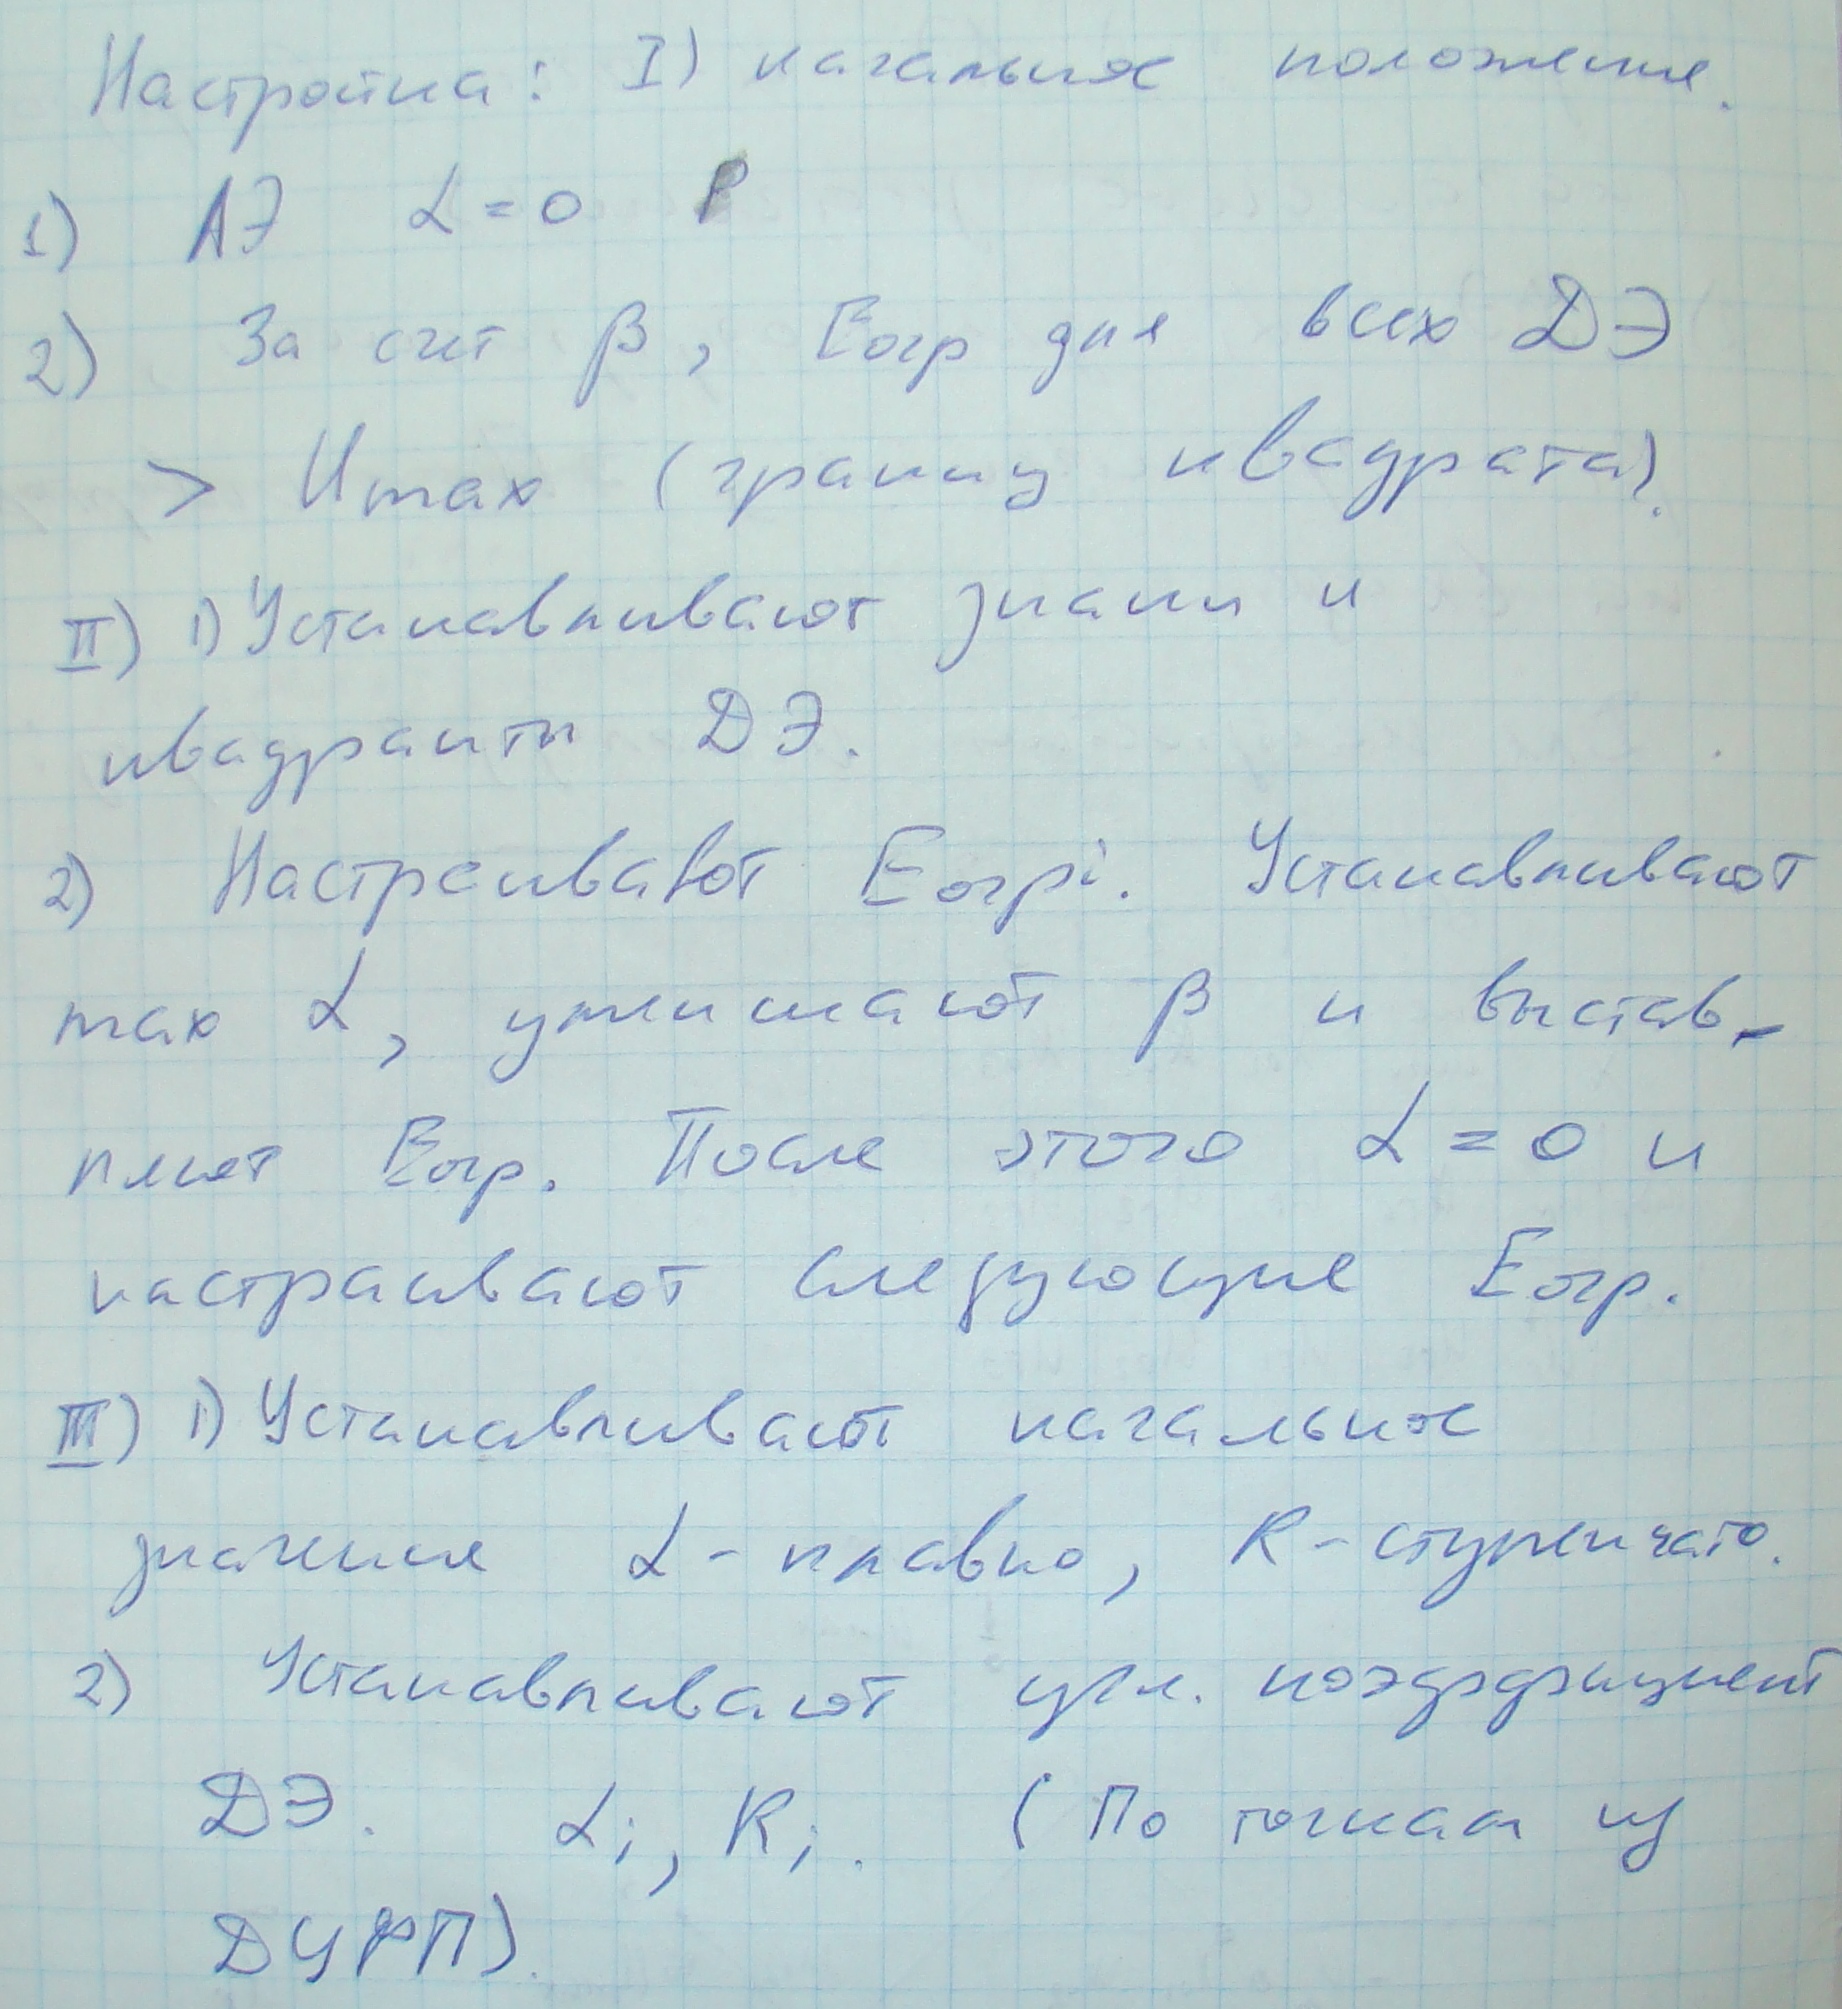 Настройка: I) начальное положение.
1) АЭ α = 0
2) За счет β, Eогр для всех ДЭ
> Umax (границ квадрата).
II) 1) Устанавливают знаки и
квадранты ДЭ.
2) Настраивают Eогрi. Устанавливают
max α, уменьшают β и выстав-
ляют Eогр. После этого α = 0 и
настраивают следующие Eогр.
III) 1) Устанавливают начальное
значение α - плавно, R - ступенчато.
2) Устанавливают угл. коэффициент
ДЭ. αi, Ri. (По точкам из
ДУФП).